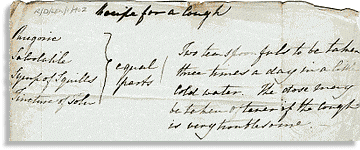 Recipe for a Cough
Paregoric
Salvolatile
Syrup of Squills
Tincture of Tolu
equal
parts
Two tea spoon fuls to be taken
three times a day in a little
cold water. The dose may
be taken oftener if the cough
is very troublesome.